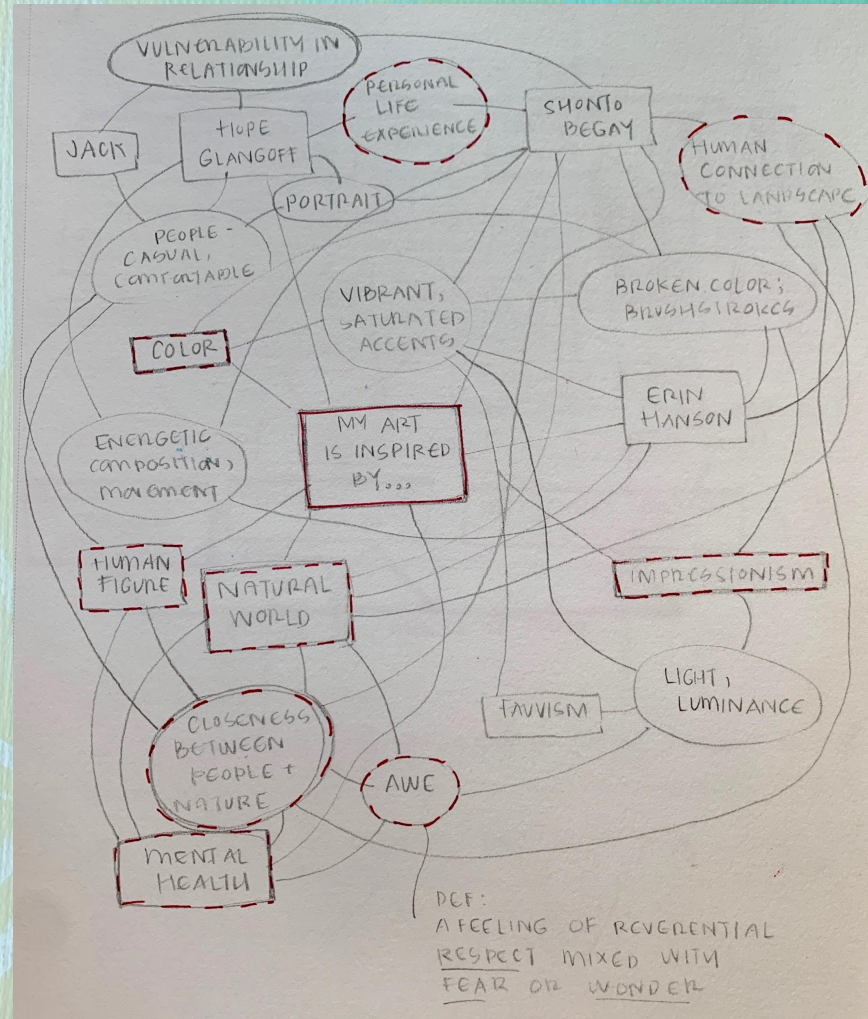 VULNERABILITY IN
RELATIONSHIP
PERSONAL
LIFE
EXPERIENCE
SHONTO
BEGAY
JACK
HOPE
GLANGOFF
HUMAN
CONNECTION
TO LANDSCAPE
PORTRAIT
PEOPLE -
CASUAL,
COMFORTABLE
VIBRANT,
SATURATED
ACCENTS
BROKEN COLOR;
BRUSHSTROKES
COLOR
ERIN
HANSON
MY ART
IS INSPIRED
BY...
ENERGETIC
COMPOSITION,
MOVEMENT
HUMAN
FIGURE
NATURAL
WORLD
IMPRESSIONISM
LIGHT,
LUMINANCE
FAUVISM
CLOSENESS
BETWEEN
PEOPLE +
NATURE
AWE
MENTAL
HEALTH
DEF:
A FEELING OF REVERENTIAL
RESPECT MIXED WITH
FEAR OR WONDER